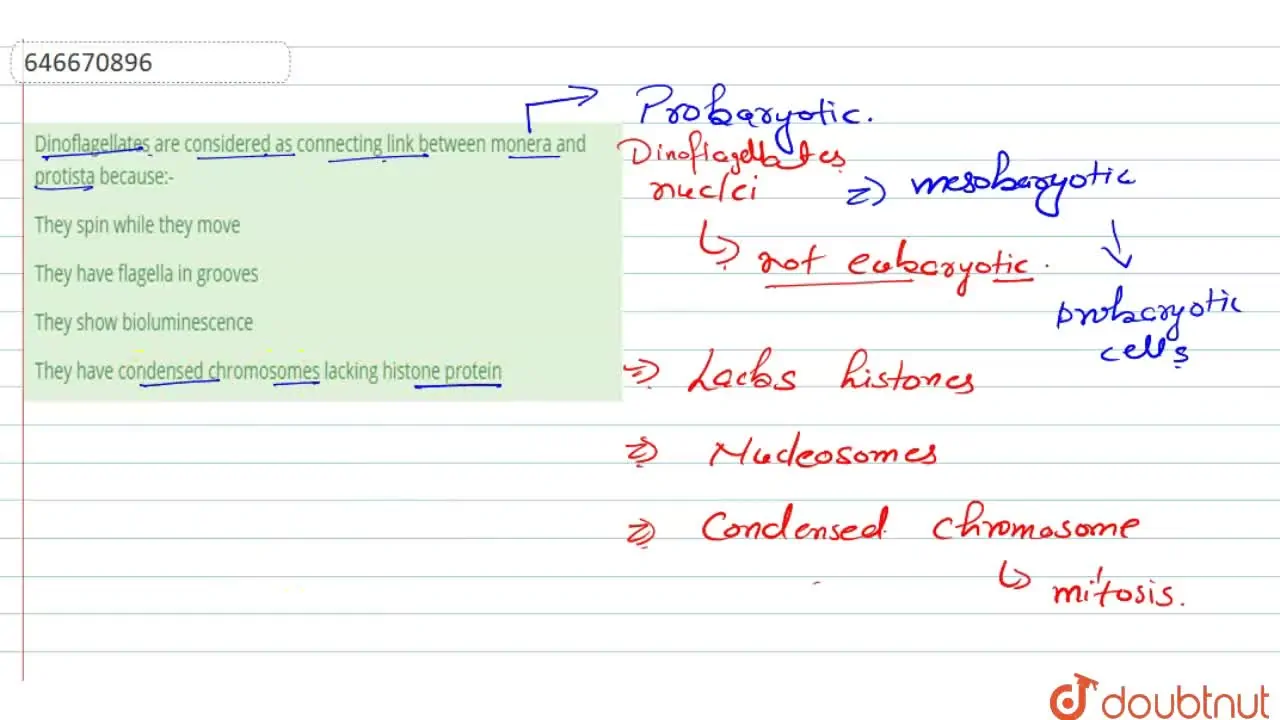 646670896
Dinoflagellates are considered as connecting link between monera and
protista because:-
They spin while they move
They have flagella in grooves
They show bioluminescence
They have condensed chromosomes lacking histone protein
Prokaryotic.
Dinoflagellates
nuclei
⇒ mesokaryotic
↳ not eukaryotic.
prokaryotic
cells
⇒ Lacks histones
⇒ Nucleosomes
⇒ Condensed chromosome
↳ mitosis.
doubtnut